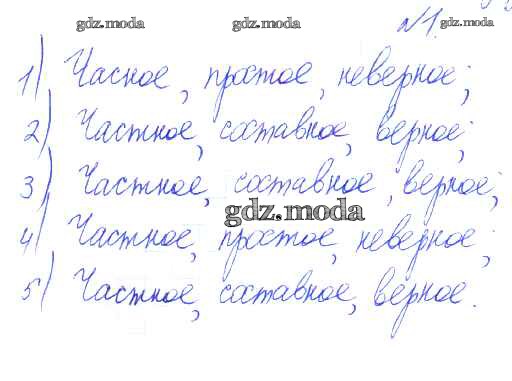 gdz.moda gdz.moda №1. gdz.moda
1) Часное, простое, неверное;
2) Частное, составное, верное;
3) Частное, составное, верное;
gdz.moda
4) Частное, простое, неверное;
5) Частное, составное, верное.